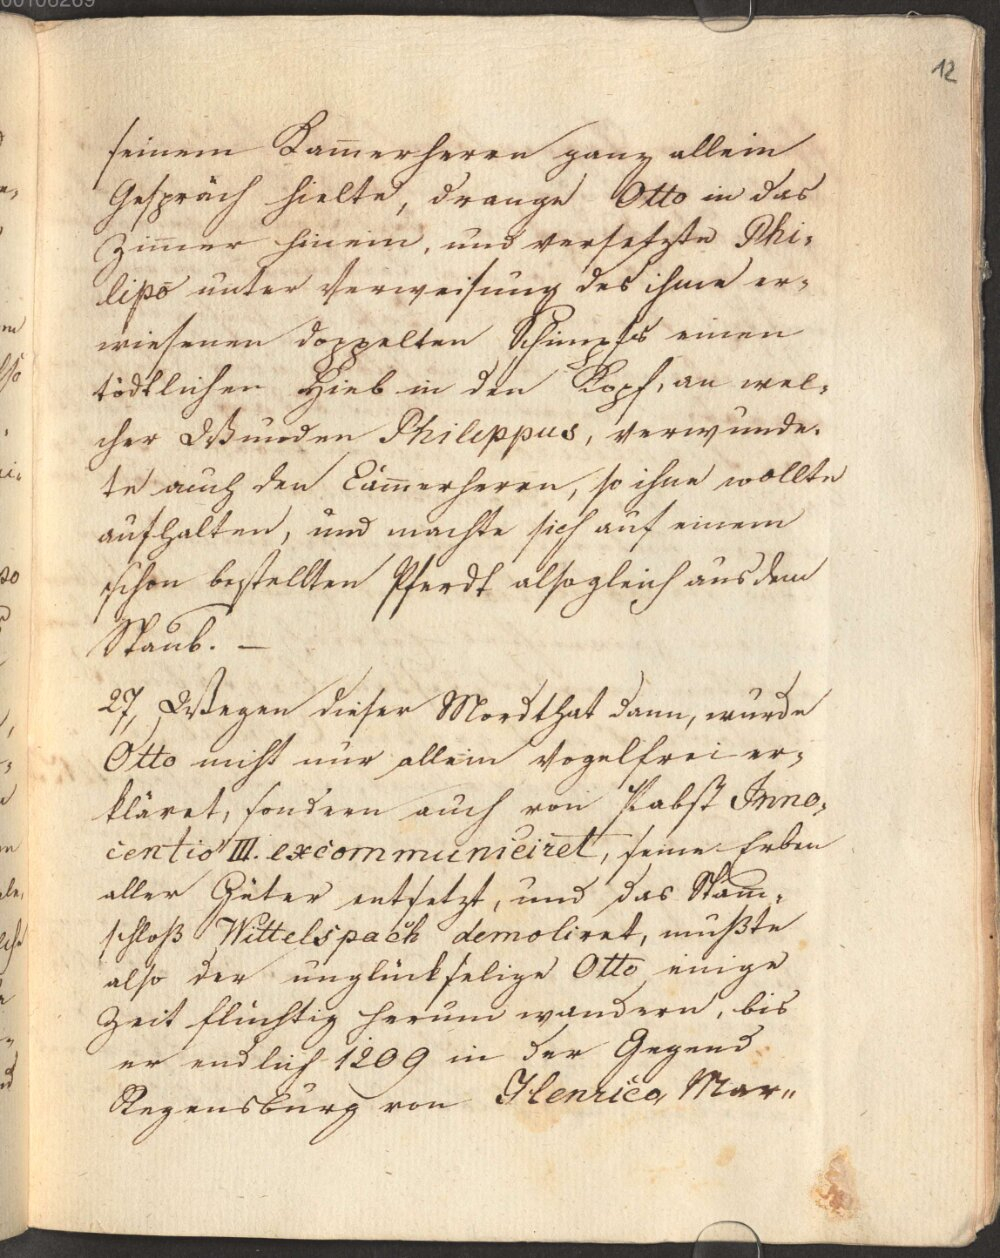 00106269
12
seinem Kam̄erherrn ganz allein
Gespräch hielte, drange Otto in das
Zim̄er hinein, und versetzte Phi-
lipo unter Verweisung des ihme er-
wiesenen doppelten Schimpfs einen
tödtlichen Hieb in den Kopf, an wel-
cher Wunden Philippus, verwunde-
te auch den Cäm̄erherrn, so ihne wollte
aufhalten, und machte sich auf einem
schon bestellten Pferdt alsogleich aus dem
Staub. —
27, Wegen dieser Mordthat dann, wurde
Otto nicht nur allein Vogelfrei er-
kläret, sondern auch von Pabst Inno-
centio III. excommuniciret, seine Erben
aller Güter entsetzt, und das Stam̄-
schloß Wittelspach demoliret, mußte
also der unglückselige Otto einige
Zeit flüchtig herum wandern, bis
er endlich 1209 in der Gegend
Regensburg von Henrico, Mar-